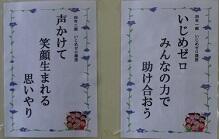 いじめゼロ
みんなの力で
助け合おう
声かけて
笑顔生まれる
思いやり